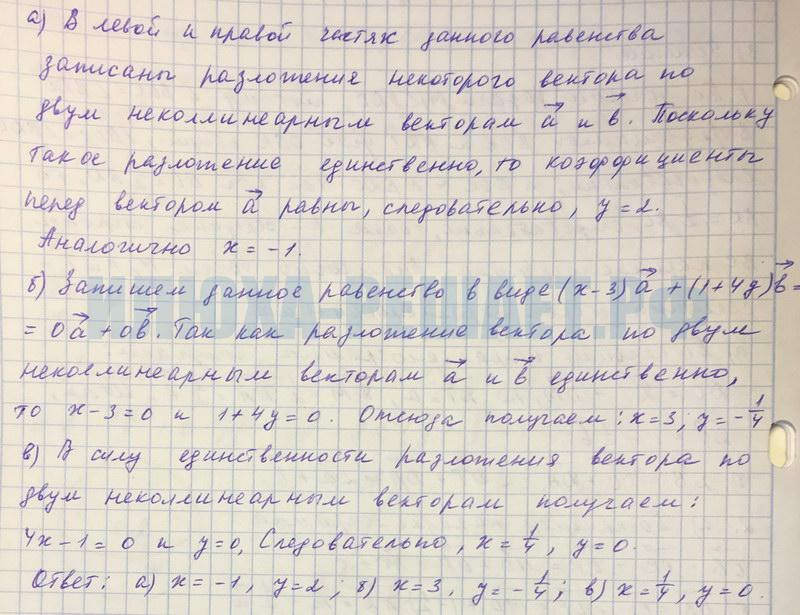 а) В левой и правой частях данного равенства
записаны разложения некоторого вектора по
двум неколлинеарным векторам a⃗ и b⃗. Поскольку
такое разложение единственно, то коэффициенты
перед вектором a⃗ равны, следовательно, y = 2.
Аналогично x = -1.
б) Запишем данное равенство в виде (x-3)a⃗ + (1+4y)b⃗ =
= 0a⃗ + 0b⃗. Так как разложение вектора по двум
неколлинеарным векторам a⃗ и b⃗ единственно,
то x-3=0 и 1+4y=0. Отсюда получаем: x=3; y=-1/4
в) В силу единственности разложения вектора по
двум неколлинеарным векторам получаем:
4x-1=0 и y=0, Следовательно, x=1/4, y=0.
Ответ: а) x=-1, y=2; б) x=3, y=-1/4; в) x=1/4, y=0.
ИЛЮХА-РЕШАЕТ.РФ